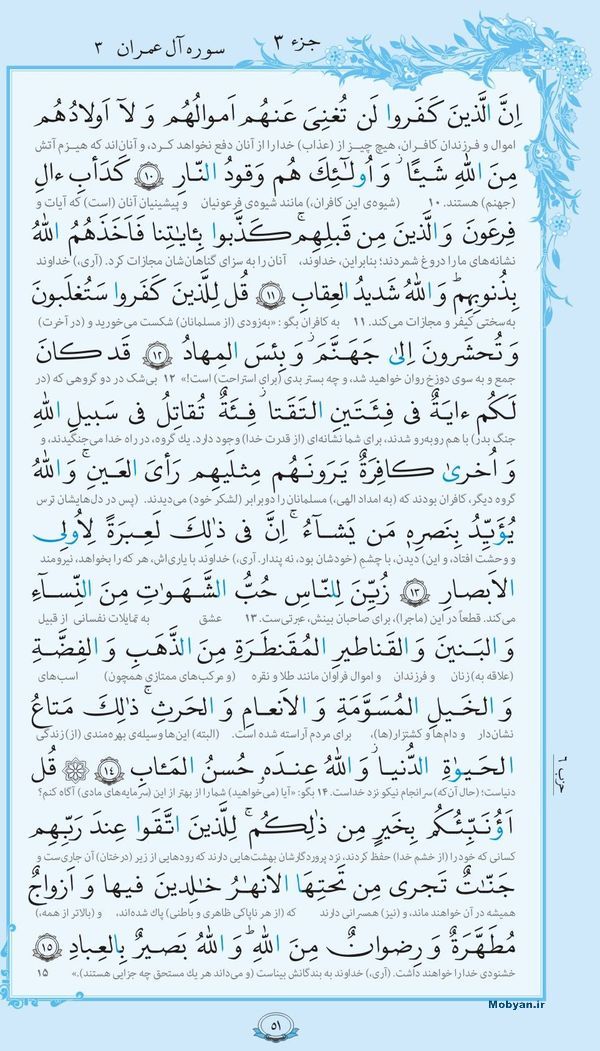 جزء ۳
سوره آل عمران ۳
اِنَّ الَّذینَ کَفَروا لَن تُغنِیَ عَنهُم اَموالُهُم وَ لآ اَولادُهُم
اموال و فرزندان کافران، هیچ چیز از (عذاب) خدا را از آنان دفع نخواهد کرد، و آنان‌اند که هیزم آتش
مِنَ اللهِ شَیـًٔا ۖ وَ اُولٰٓئِکَ هُم وَقودُ النّارِ ﴿۱۰﴾ کَدَأبِ ءالِ
(جهنم) هستند. ۱۰ (شیوه‌ی این کافران،) مانند شیوه‌ی فرعونیان و پیشینیان آنان (است) که آیات و
فِرعَونَ وَ الَّذینَ مِن قَبلِهِم ۚ کَذَّبوا بِـٔایٰتِنا فَاَخَذَهُمُ اللهُ
نشانه‌های ما را دروغ شمردند؛ بنابراین، خداوند، آنان را به سزای گناهان‌شان مجازات کرد. (آری،) خداوند
بِذُنوبِهِم ۗ وَ اللهُ شَدیدُ العِقابِ ﴿۱۱﴾ قُل لِلَّذینَ کَفَروا سَتُغلَبونَ
به‌سختی کیفر و مجازات می‌کند. ۱۱ به کافران بگو: «به‌زودی (از مسلمانان) شکست می‌خورید و (در آخرت)
وَ تُحشَرونَ اِلیٰ جَهَنَّمَ ۚ وَ بِئسَ المِهادُ ﴿۱۲﴾ قَد کانَ
جمع و به سوی دوزخ روان خواهید شد، و چه بستر بدی (برای استراحت) است!» ۱۲ بی‌شک در دو گروهی که (در
لَکُم ءایَةٌ فی فِئَتَینِ التَقَتا ۖ فِئَةٌ تُقاتِلُ فی سَبیلِ اللهِ
جنگ بدر) با هم روبه‌رو شدند، برای شما نشانه‌ای (از قدرت خدا) وجود دارد. یك گروه، در راه خدا می‌جنگیدند، و
وَ اُخریٰ کافِرَةٌ یَرَونَهُم مِثلَیهِم رَأیَ العَینِ ۚ وَ اللهُ
گروه دیگر، کافران بودند که (به امداد الهی،) مسلمانان را دوبرابر (لشکر خود) می‌دیدند. (پس در دل‌هایشان ترس
یُؤَیِّدُ بِنَصرِهٖ مَن یَشآءُ ۗ اِنَّ فی ذٰلِکَ لَعِبرَةً لِاُولِی
و وحشت افتاد، و این) دیدن، با چشم (خودشان بود، نه پندار. آری،) خداوند با یاری‌اش، هر که را بخواهد، نیرومند
الاَبصارِ ﴿۱۳﴾ زُیِّنَ لِلنّاسِ حُبُّ الشَّهَوٰتِ مِنَ النِّسآءِ
می‌کند. قطعاً در این (ماجرا)، برای صاحبان بینش، عبرتی‌ست. ۱۳ عشق به تمایلات نفسانی از قبیل
وَ البَنینَ وَ القَناطیرِ المُقَنطَرَةِ مِنَ الذَّهَبِ وَ الفِضَّةِ
(علاقه به) زنان و فرزندان و اموال فراوان مانند طلا و نقره (و مرکب‌های ممتازی همچون) اسب‌های
وَ الخَیلِ المُسَوَّمَةِ وَ الاَنعامِ وَ الحَرثِ ۗ ذٰلِکَ مَتاعُ
نشان‌دار و دام‌ها و کشتزار(ها)، برای مردم آراسته شده است. (البته) این‌ها وسیله‌ی بهره‌مندی (از) زندگی
الحَیوٰةِ الدُّنیا ۖ وَ اللهُ عِندَهٗ حُسنُ المَـٔابِ ﴿۱۴﴾ قُل
دنیاست؛ (حال آن‌که) سرانجام نیکو نزد خداست. ۱۴ بگو: «آیا (می‌خواهید) شما را از بهتر از این (سرمایه‌های مادی) آگاه کنم؟
حزب ۶
اَؤُنَبِّئُکُم بِخَیرٍ مِن ذٰلِکُم ۚ لِلَّذینَ اتَّقَوا عِندَ رَبِّهِم
کسانی که خود را (از خشم خدا) حفظ کردند، نزد پروردگارشان بهشت‌هایی دارند که رودهایی از زیر (درختان) آن جاری‌ست و
جَنّاتٌ تَجری مِن تَحتِهَا الاَنهٰرُ خٰلِدینَ فیها وَ اَزواجٌ
همیشه در آن خواهند ماند، و (نیز) همسرانی دارند که (از هر ناپاکی ظاهری و باطنی) پاك شده‌اند، و (بالاتر از همه،)
مُطَهَّرَةٌ وَ رِضوانٌ مِنَ اللهِ ۗ وَ اللهُ بَصیرٌ بِالعِبادِ ﴿۱۵﴾
خشنودی خدا را خواهند داشت. (آری،) خداوند به بندگانش بیناست (و می‌داند هر یك مستحق چه جزایی هستند).» ۱۵
Mobyan.ir
۵۱